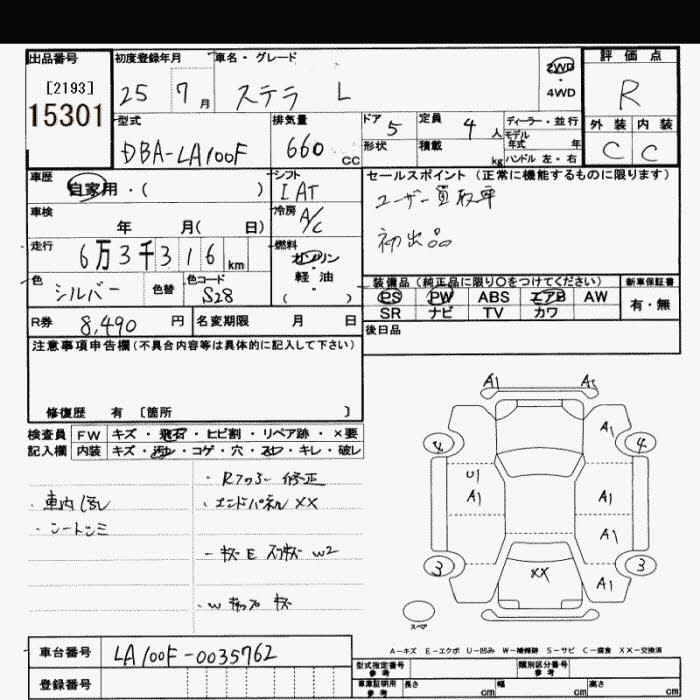 出品番号 初度登録年月 車名・グレード 評価点
[2193] 25 7 月 ステラ L 2WD ・ 4WD R
15301
型式 排気量 ドア 5 定員 4 人 ディーラー・並行 外装 内装
DBA-LA100F 660 cc 形状 積載 kg モデル年式 年 C C
ハンドル 左・右
車歴 自家用・( ) シフト IAT セールスポイント (正常に機能するものに限ります)
車検 年 月( 日) 冷房 A/C ユーザー買取車
走行 6万3千316 km 燃料 ガソリン・軽油 ( ) 初出品
色 シルバー 色替 色コード S28 装備品 (純正品に限り○をつけてください) 新車保証書
PS PW ABS エアB AW 有・無
SR ナビ TV カワ
R券 8,490 円 名変期限 月 日 後日品
注意事項申告欄 (不具合内容等は具体的に記入して下さい)
修復歴 有 〔箇所 〕
検査員 FW キズ・飛石・ヒビ割・リペア跡・×要
記入欄 内装 キズ・汚れ・コゲ・穴・スレ・キレ・破レ
・Rフロアー 修正
・車内汚れ ・エンドパネル XX
・シートシミ
・キズ E スリキズ W2
A1 A1
4 A1 4
U1
A1 A1
A1
3 XX 3
A1
スペア
A-キズ E-エクボ U-凹み W-補修跡 S-サビ C-腐食 XX-交換済
車台番号 LA100F-0035762 型式指定番号 参考 類別区分番号 参考
登録番号 車庫証明用 参考 長さ cm 幅 cm 高さ cm